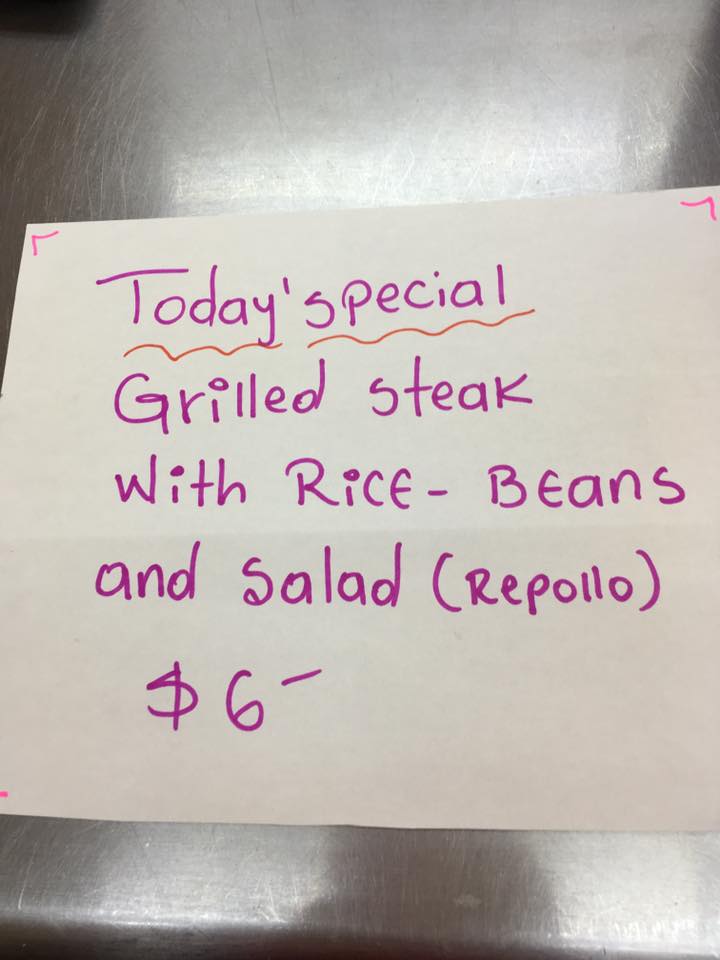 Today'special
Grilled steak
With RicE - BEans
and salad (Repollo)
$6-